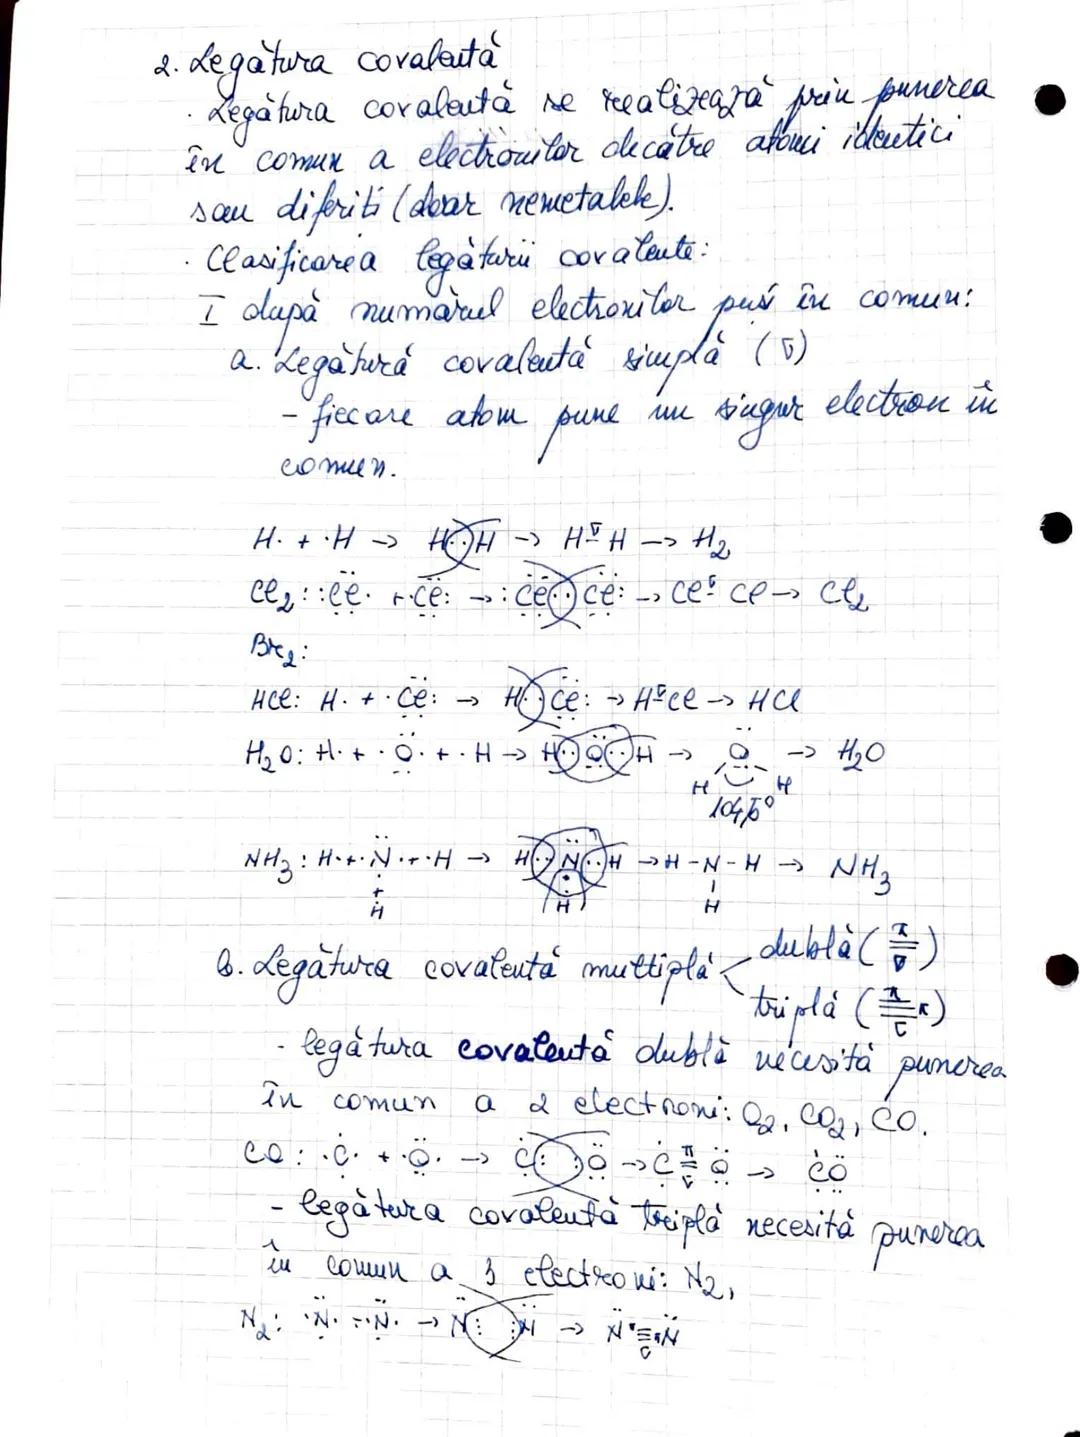 2. Legătura covalentă
· Legătura covalentă se realizează prin punerea
în comun a electronilor decătre atomi identici
sau diferiți (doar nemetalele).
· Clasificarea legăturii covalente:
I după numărul electronilor puși în comun:
a. Legătură covalentă simplă (σ)
- fiecare atom pune un singur electron în
comun.
H· + ·H → H··H → H σ– H → H₂
Cl₂: :Cl· + ·Cl: → :Cl··Cl: → Cl σ– Cl → Cl₂
Br₂:
HCl: H· + ·Cl: → H··Cl: → H σ– Cl → HCl
H₂O: H· + ·O· + ·H → H··O··H → O → H₂O
H H
104,5°
NH₃: H· + ·N· + ·H → H··N··H → H-N-H → NH₃
+
H H H
b. Legătura covalentă multiplă < dublă (π = σ)
triplă (π ≡ π σ)
- legătura covalentă dublă necesită punerea
în comun a 2 electroni: O₂, CO₂, CO.
CO: ·C· + ·O· → C: :O → C π = σ O → CO
- legătura covalentă triplă necesită punerea
în comun a 3 electroni: N₂,
N₂: ·N· + ·N· → N⫶ ⫶N → N π ≡ π σ N